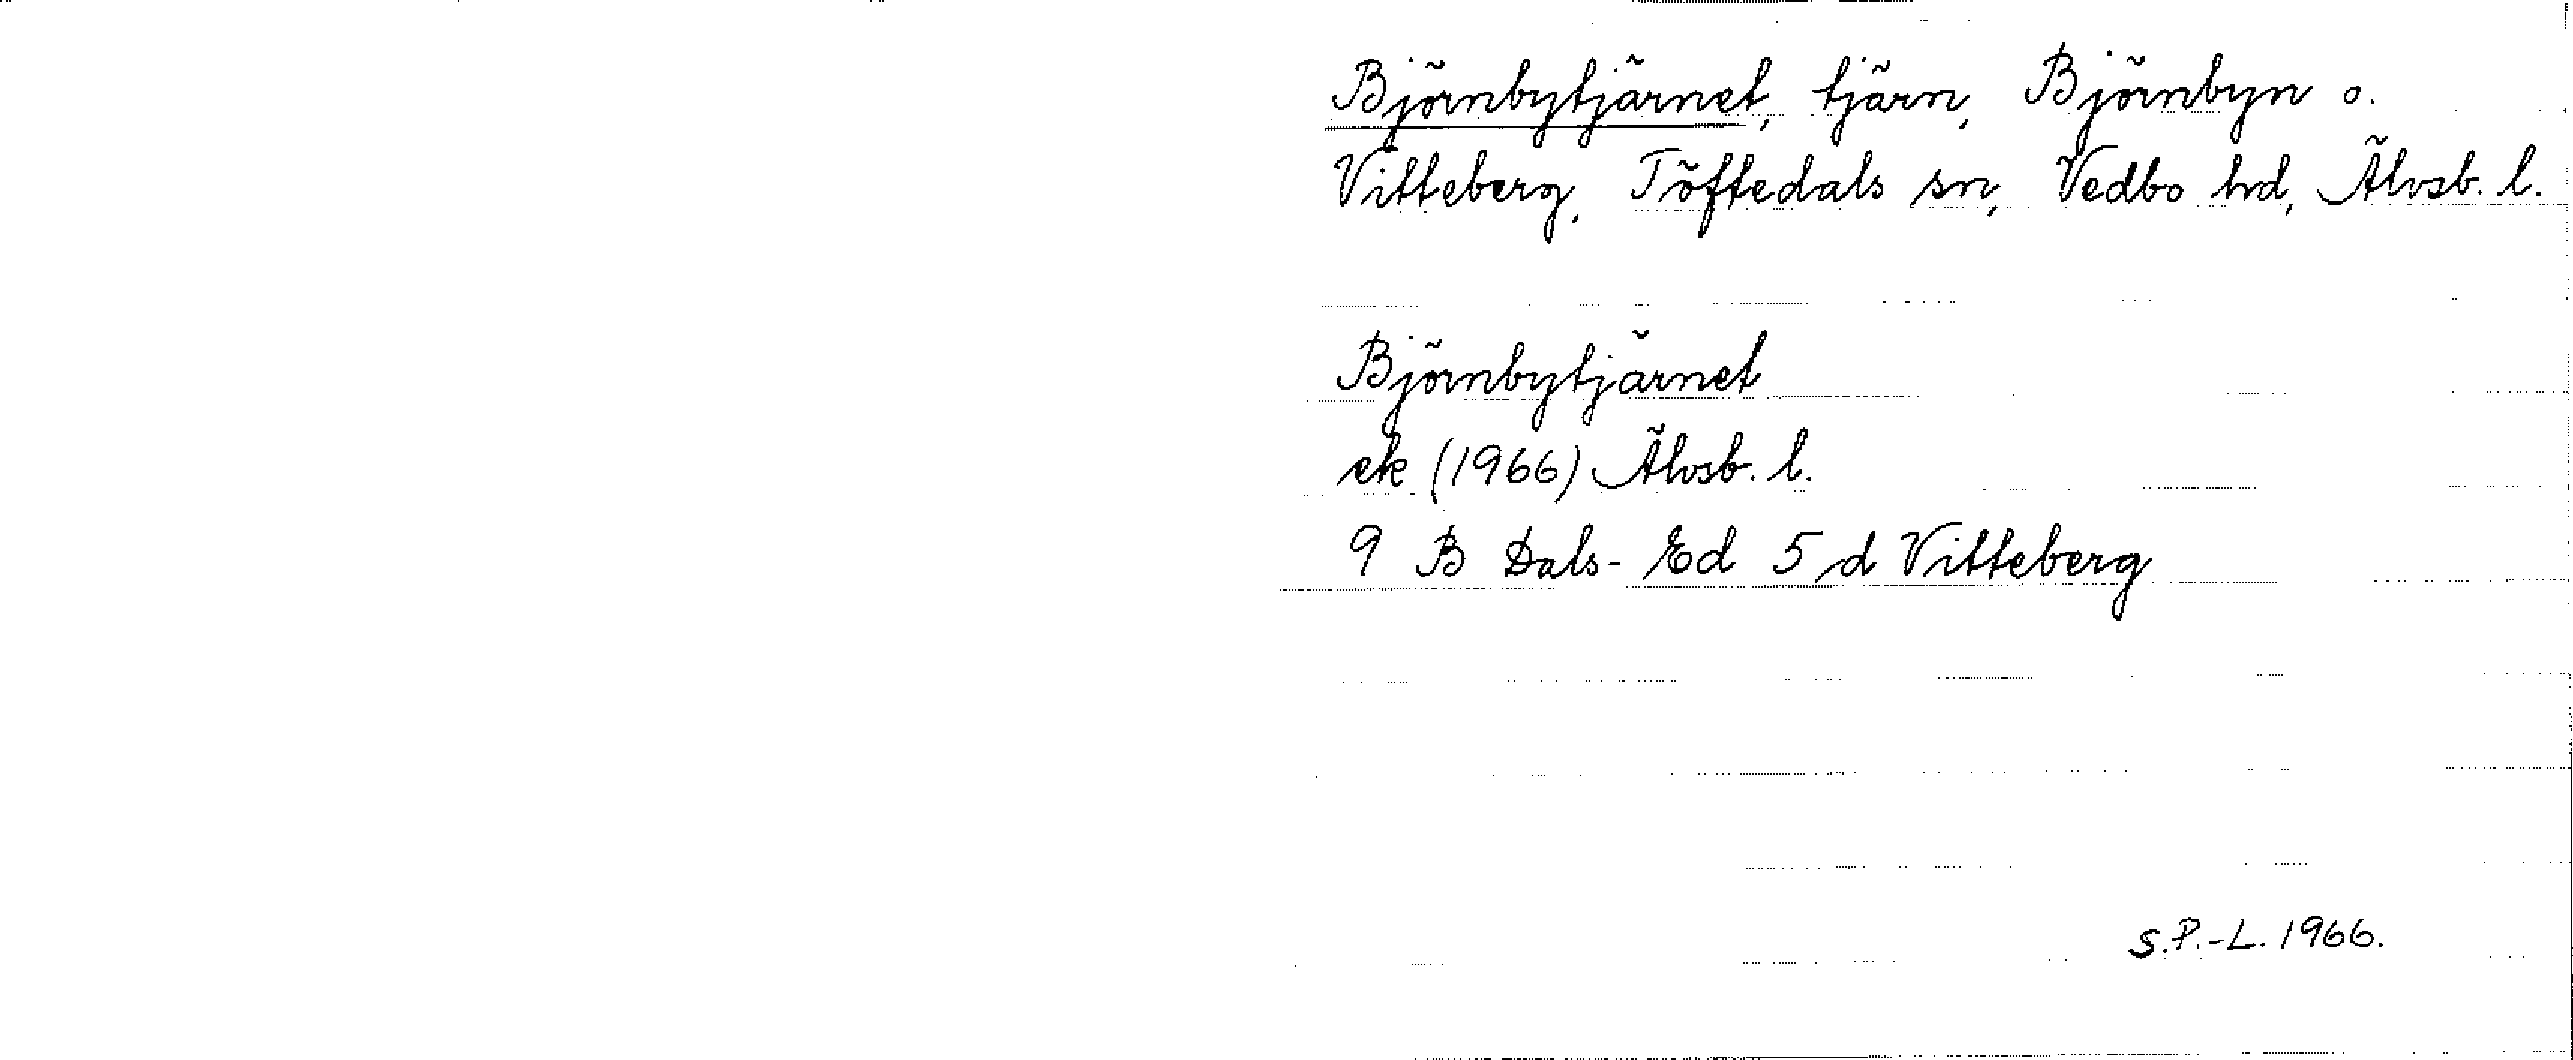 Björnbytjärnet, tjärn, Björnbyn o.
Vitteberg, Töftedals sn, Vedbo hd, Älvsb. l.
Björnbytjärnet
ek (1966) Älvsb. l.
9 B Dals-Ed 5 d Vitteberg
S.P.-L. 1966.